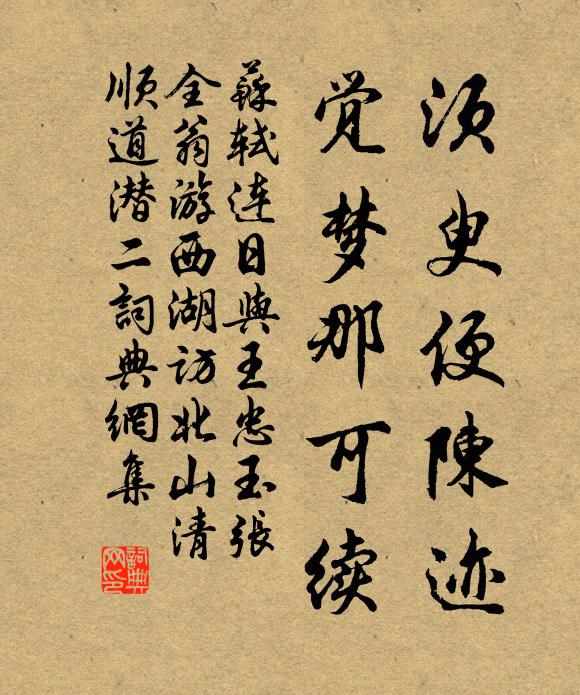 须叟便陳迹
觉梦那可续
蘇轼连日與王忠玉張
全翁游西湖访北山清
顺道潜二詞典網集
詞典
网印